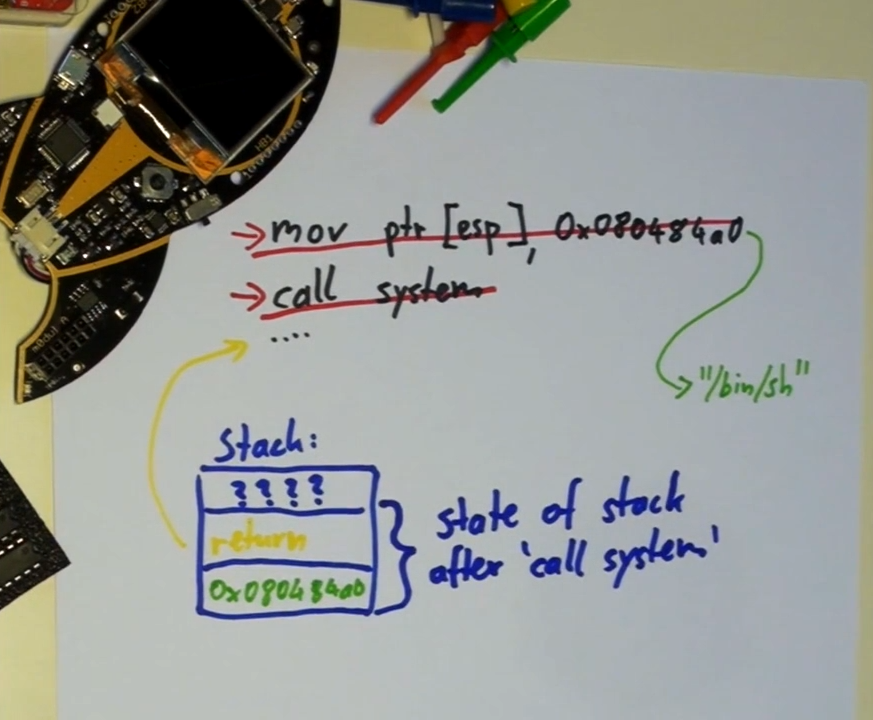 →mov ptr [esp], 0x080484a0
→call system
....
→"/bin/sh"
Stack:
????
return
0x080484a0
state of stack
after 'call system'